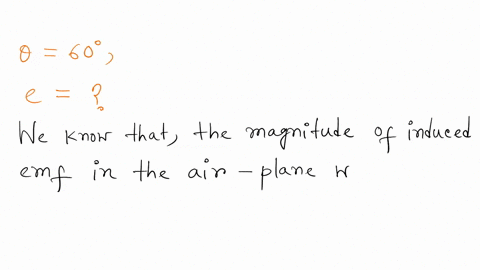 θ = 60°,
e = ?
We know that, the magnitude of induced
emf in the air-plane w